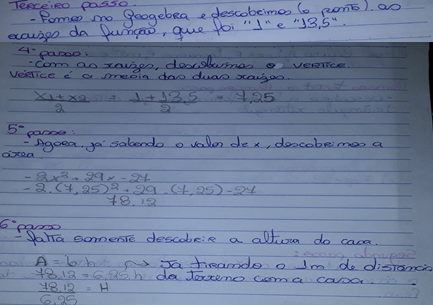 Terceiro passo:
- Fomos no Geogebra e descobrimos (o ponto) as
raizes da função, que foi "1" e "13,5".
4º passo:
- Com as raizes, descobrimos o vertice.
Vertice é a media das duas raizes.
x1+x2 = 1+13,5 = 7,25
2 2
5º passo:
- Agora, já sabendo o valor de x, descobrimos a
área
- 2x² + 29x - 27
- 2.(7,25)² + 29.(7,25) - 27
78,12
6º passo
- falta somente descobrir a altura da casa.
A = b.h → Já tirando o 1m de distancia
78,12 = 6,25.h do terreno com a casa.
78,12 = H
6,25